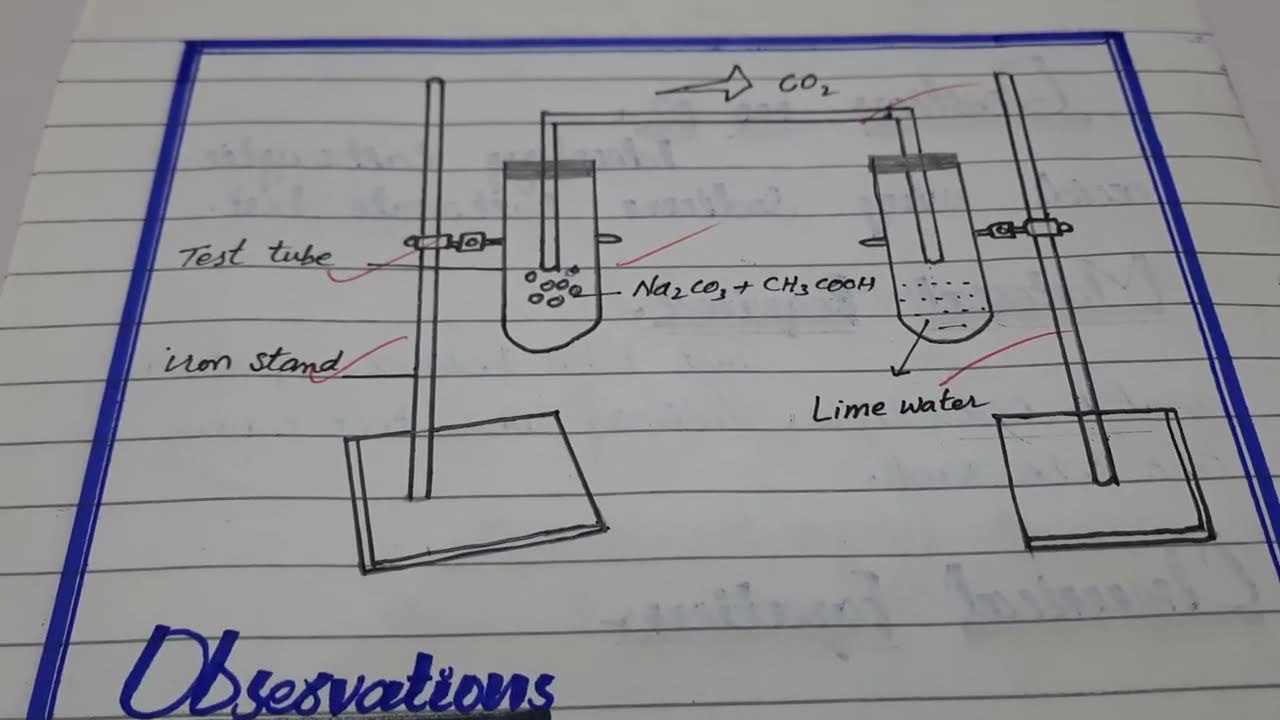 CO₂
Test tube
Na₂CO₃ + CH₃COOH
iron stand
Lime water
Observations